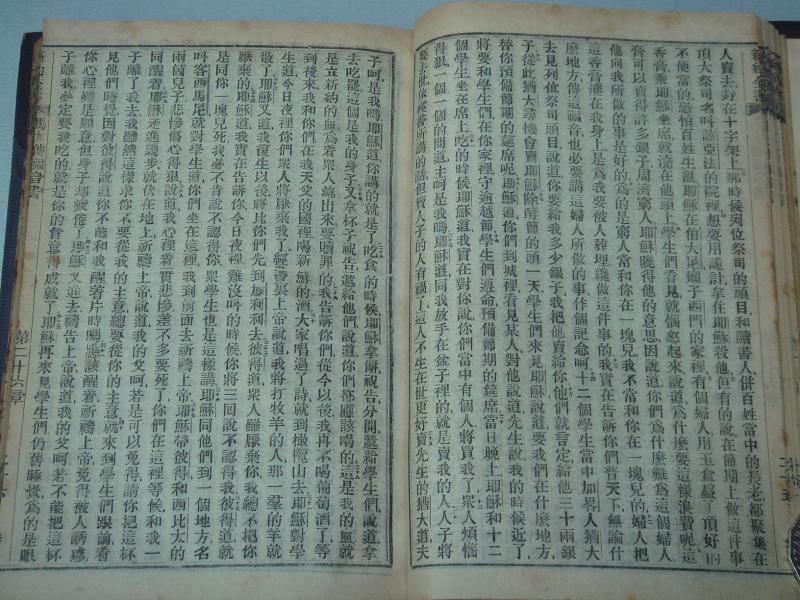 人賣去釘在十字架上那時候列位祭司的頭目和讀書人併百姓當中的長老都聚集在
頂大祭司名叫該亞法的院裡想要用詭計拿住耶穌殺他但有的說在節期上做這件事
不便當的恐怕百姓生亂耶穌在伯大尼癩子西門的家裡有個婦人用玉盒盛了頂好的
香膏乘耶穌坐席就儘倒在他頭上學生們看見就惱怒起來說道爲什麼要這樣浪費呢這
膏可以賣得許多銀子周濟窮人耶穌曉得他的意思因說道你們爲什麼難爲這個婦人
他向我所做的事是好的爲的是窮人常和你在一塊兒我不常和你在一塊兒的婦人把
這香膏灌在我身上是爲我要被人葬埋纔做這件事的我實在告訴你們普天下無論什
麼地方傳這福音也必要講這婦人所做的事件作個記念呵十二個學生當中加畧人猶大
去見列位祭司頭目說道你要給我多少銀子我把他賣給你他們就言定給他三十兩銀
子從此猶大尋機會賣耶穌除酵節的頭一天學生們來見耶穌說道要我們在什麼地方
替你預備節期的筵席呢耶穌道你們到城裡看見某人對他說道先生說我的時候近了
我和學生們在你家裡守逾越節學生們遵命預備節期的筵席當日晚上耶穌和十二
個學生坐在席上吃的時候耶穌道我實在對你說你們當中有個人將買我了衆人煩惱
得狠一個一個的問道主呵是我嗎耶穌道同我放手在盆子裡的就是賣我的人人子將
要去世依經書所講的話但賣人子的人有禍了這人不生在世更好賣先生的猶大道夫
子呵是我嗎耶穌道你講的就是了吃食的時候耶穌拿餅祝告分開遞給學生們說道拿
去吃罷這個是我的身子又拿杯子祝告遞給他們說道你們都應該喝的這是我的血就
是立新約的血爲着衆人流出來要贖罪的我告訴你們從今以後我再不喝葡萄酒了等
到後來我和你們在我天父的國裡喝新鮮的酒大家唱過了詩就到橄欖山去耶穌對學
生道今日夜裡你們衆人將厭棄我了經書裏上帝說道我將打牧羊的人那一羣的羊就
散了耶穌又道我復生以後將比你們先到加利利去彼得道衆人雖厭棄你我總不把你
厭棄的耶穌道我實在告訴你今日夜裡雞沒呌的時候你將三回說不認得我彼得道就
是同你一塊兒死我必不肯說不認得你衆學生也是這樣講耶穌同他們到一個地方名
呌客西馬尼就對學生道你們坐在這裡我到前面去祈禱上帝耶穌帶彼得和西比太的
兩箇兒子悲慘傷心得狠說道我心裡着實悲慘差不多要死了你們在這裡等候和我一
同醒着耶穌走遠幾步就伏在地上祈禱上帝說道我的父呵若是可以免得請你把這杯
子離了我去我雖然這樣求你不要從我的主意總要從你的主意就來到學生們跟前看
見他們睡覺因對彼得說道你不能和我醒着片時嗎應該醒着祈禱上帝免得被人誘惑
你心裡雖是願意但身子却疲倦了耶穌又進去禱告上帝說道我的父呵若不能把這杯
子離我總定要我吃的就是你的旨意得成就了耶穌再來見學生們仍舊睡覺爲的是眼
第二十六章